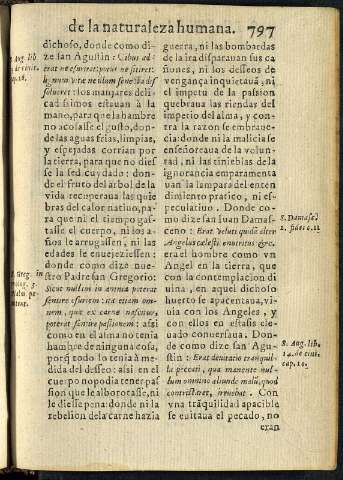 de la naturaleza humana. 797
dichoso, donde como di-
ze san Agustin: Cibus ad-
erat ne esuriret: potus ne sitiret:
lignum vitæ ne illum senecta dis-
solueret: los manjares deli-
cadissimos estauan à la
mano, para que la hambre
no acosasse el gusto, don-
de las aguas frias, limpias,
y espejadas corrian por
la tierra, para que no dies-
se la sed cuydado: don-
de el fruto del arbol de la
vida recuperaua las quie
bras del calor natiuo, pa-
ra que ni el tiempo gas-
tasse el cuerpo, ni los a-
ños le arrugassen, ni las
edades le enuejeziessen:
donde como dize nue-
stro Padre san Gregorio:
Sicut nullum in anima poterat
sentire esuriem: ita etiam om-
nem, quæ ex carne nascitur,
poterat sentire passionem: assi
como en el alma no tenia
hambre de ninguna cosa,
porq̃ todo lo tenia à me-
dida del desseo: assi en el
cuerpo no podia tener pas
sion que le alborotasse, ni
le diesse pena: donde ni la
rebelion de la carne hazia
guerra, ni las bombardas
de la ira disparauan sus ca
ñones, ni los desseos de
vengança inquietauã, ni
el impetu de la passion
quebraua las riendas del
imperio del alma, y con-
tra la razon se embraue-
cia: donde ni la malicia se
enseñoreaua de la volun-
tad, ni las tinieblas de la
ignorancia emparamenta
uan la lampara del enten
dimiento pratico, ni es-
peculatiuo. Donde co
mo dize san Iuan Damas-
ceno: Erat veluti quidã alter
Angelus cælesti enutritus &c.
era el hombre como vn
Angel en la tierra, que
con la contemplacion di
uina, en aquel dichoso
huerto se apacentaua, vi-
uia con los Angeles, y
con ellos en estasis ele-
uado conuersaua. Don-
de como dize san Agu-
stin: Erat deuitatio tranquil-
la peccati, qua manente nul-
lum omnino aliunde malũ, quod
contristaret, irruebat. Con
vna trãquilidad apacible
se euitaua el pecado, no
eran
S. Damasc.
2. fidei c. 11
S. Aug. lib.
14. de ciui.
cap. 10.